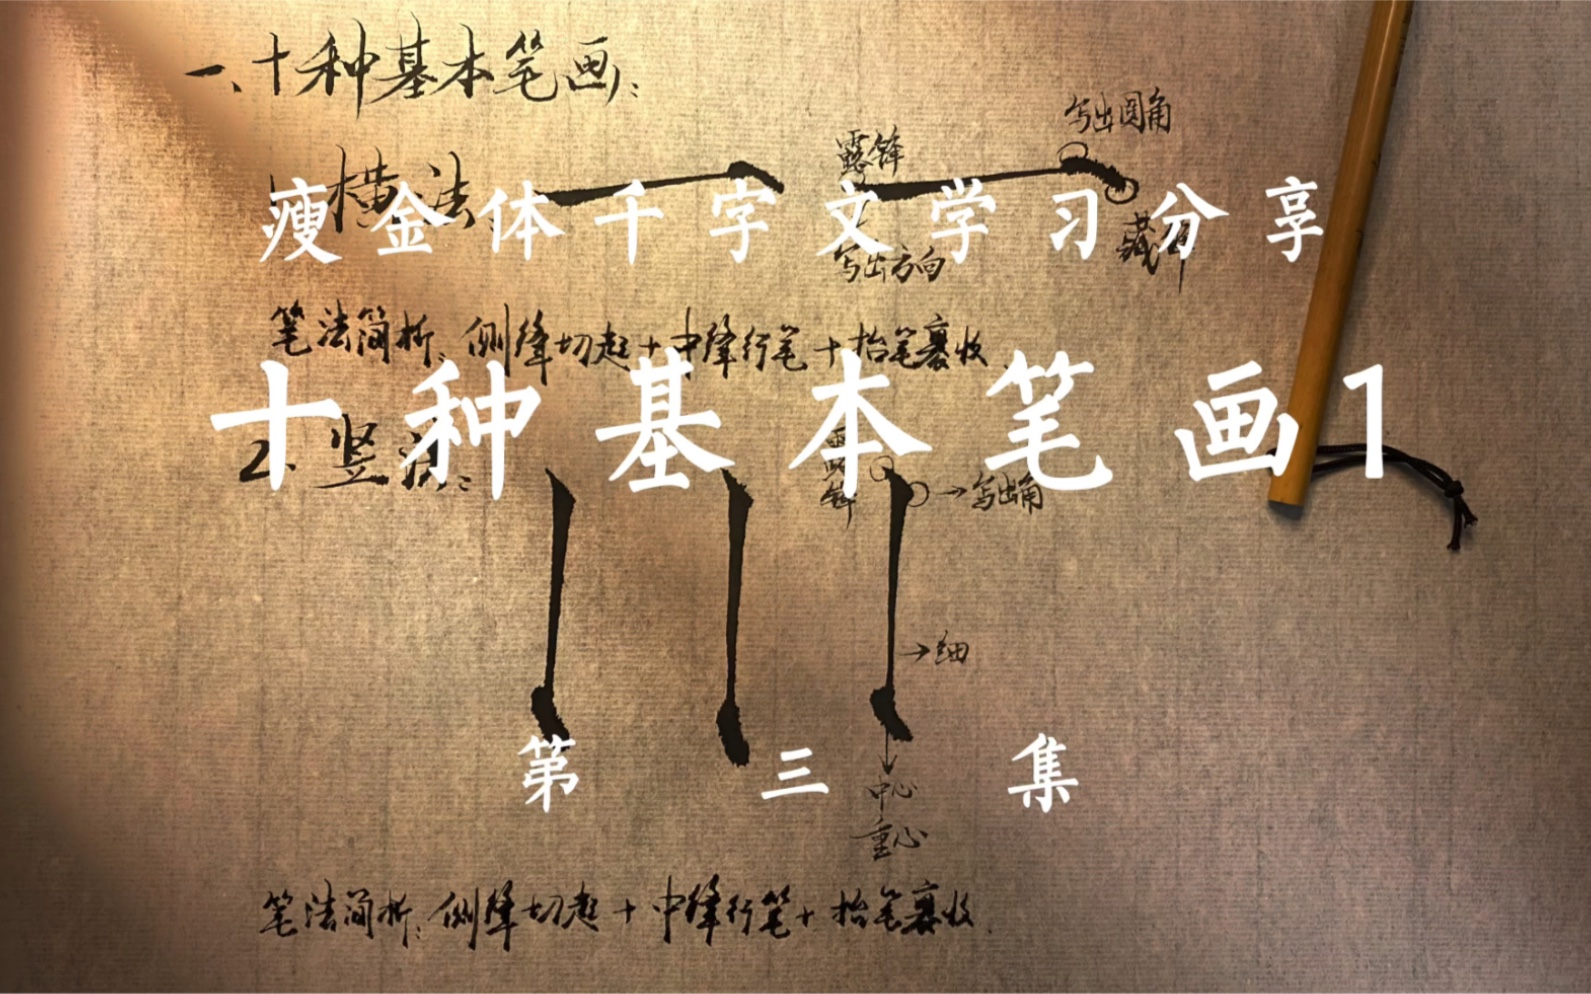 一、十种基本笔画：
写出圆角
露锋
1、横法
瘦金体千字文学习分享
写出方向
藏锋
笔法简析：侧锋切起+中锋行笔+抬笔裹收.
十种基本笔画1
2、竖法：
露锋
→写出角
→细
第三集
中心
重心
笔法简析：侧锋切起+中锋行笔+抬笔裹收.